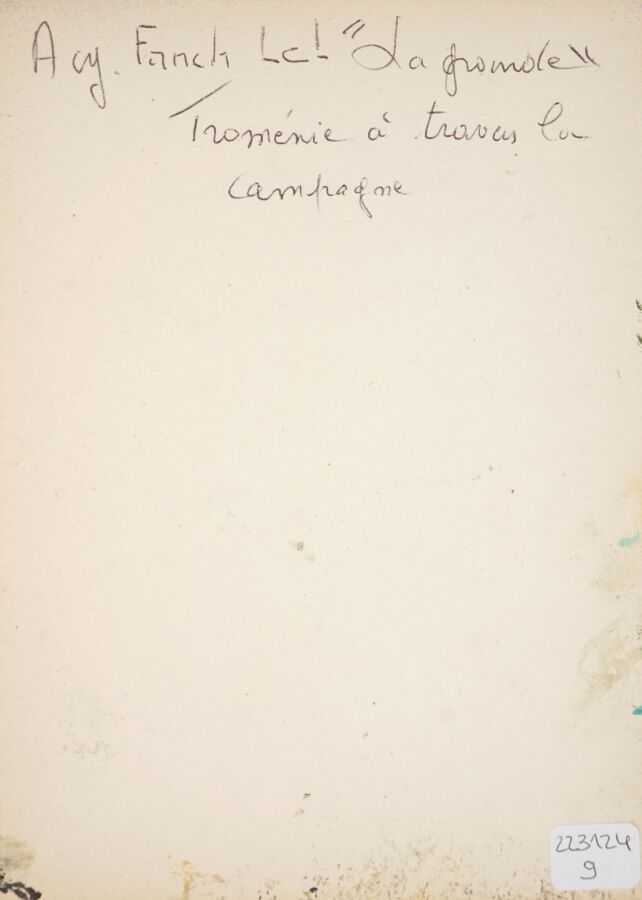 Acy. Franck Lcl "La grande"
Troménie à travers la
campagne
223124
9